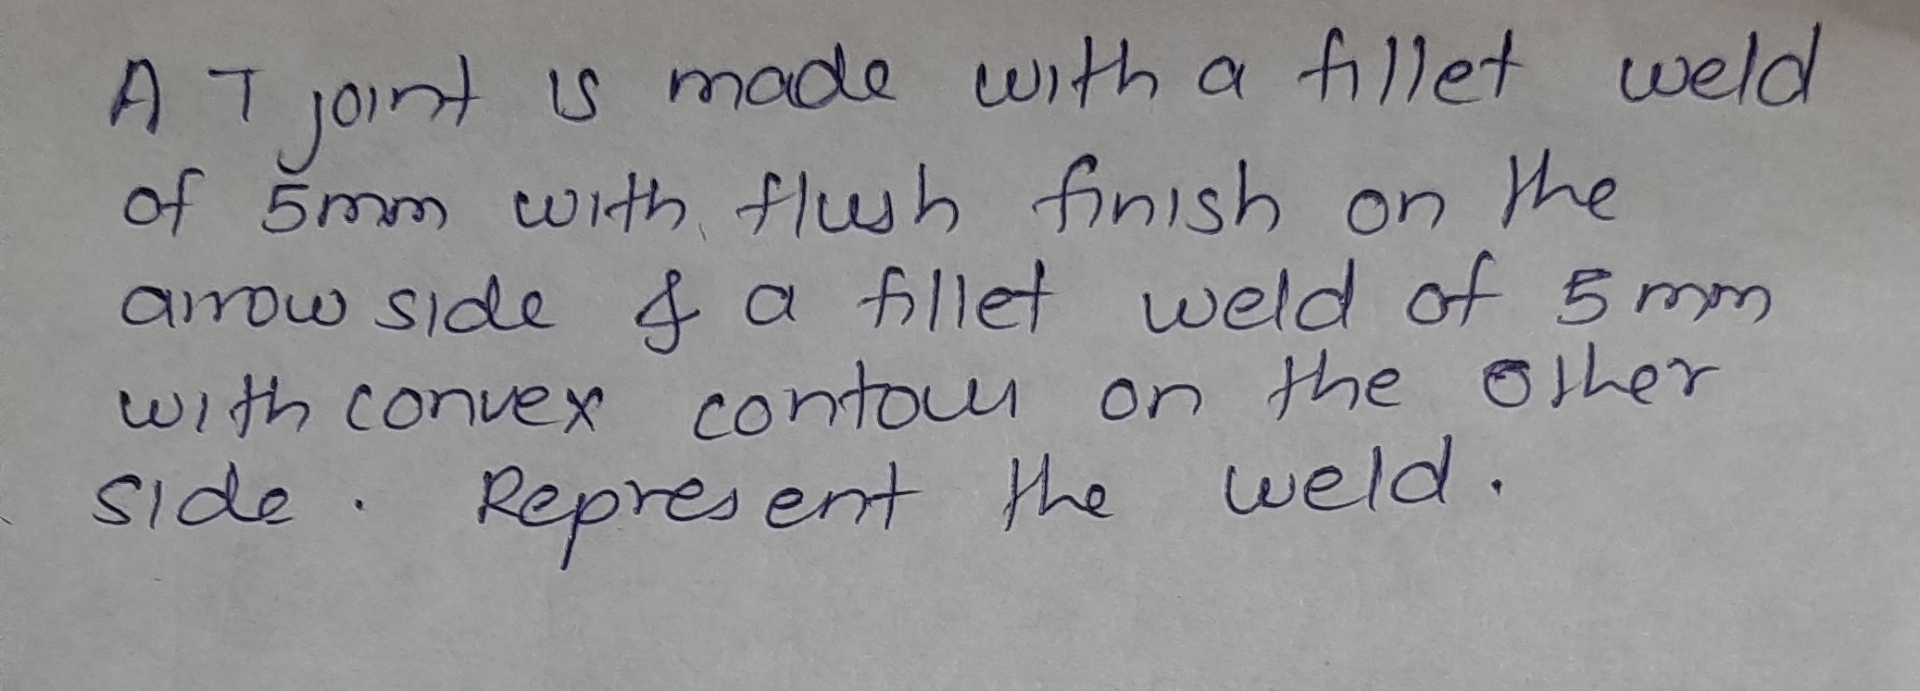 A T joint is made with a fillet weld
of 5mm with flush finish on the
arrow side & a fillet weld of 5 mm
with convex contour on the other
side. Represent the weld.